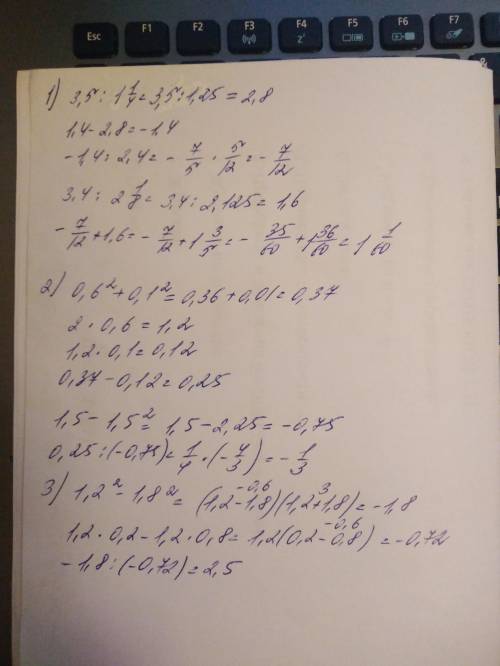 Esc F1 F2 F3 F4 F5 F6 F7
&
1) 3,5 : 1 1/4 = 3,5 : 1,25 = 2,8
1,4 - 2,8 = -1,4
-1,4 : 2,4 = - 7/5 · 5/12 = - 7/12
3,4 : 2 1/8 = 3,4 : 2,125 = 1,6
- 7/12 + 1,6 = - 7/12 + 1 3/5 = - 35/60 + 1 36/60 = 1 1/60
2) 0,6² + 0,1² = 0,36 + 0,01 = 0,37
2 · 0,6 = 1,2
1,2 · 0,1 = 0,12
0,37 - 0,12 = 0,25
1,5 - 1,5² = 1,5 - 2,25 = -0,75
0,25 : (-0,75) = 1/4 · (- 4/3) = - 1/3
-0,6 3
3) 1,2² - 1,8² = (1,2 - 1,8)(1,2 + 1,8) = -1,8
-0,6
1,2 · 0,2 - 1,2 · 0,8 = 1,2(0,2 - 0,8) = -0,72
-1,8 : (-0,72) = 2,5